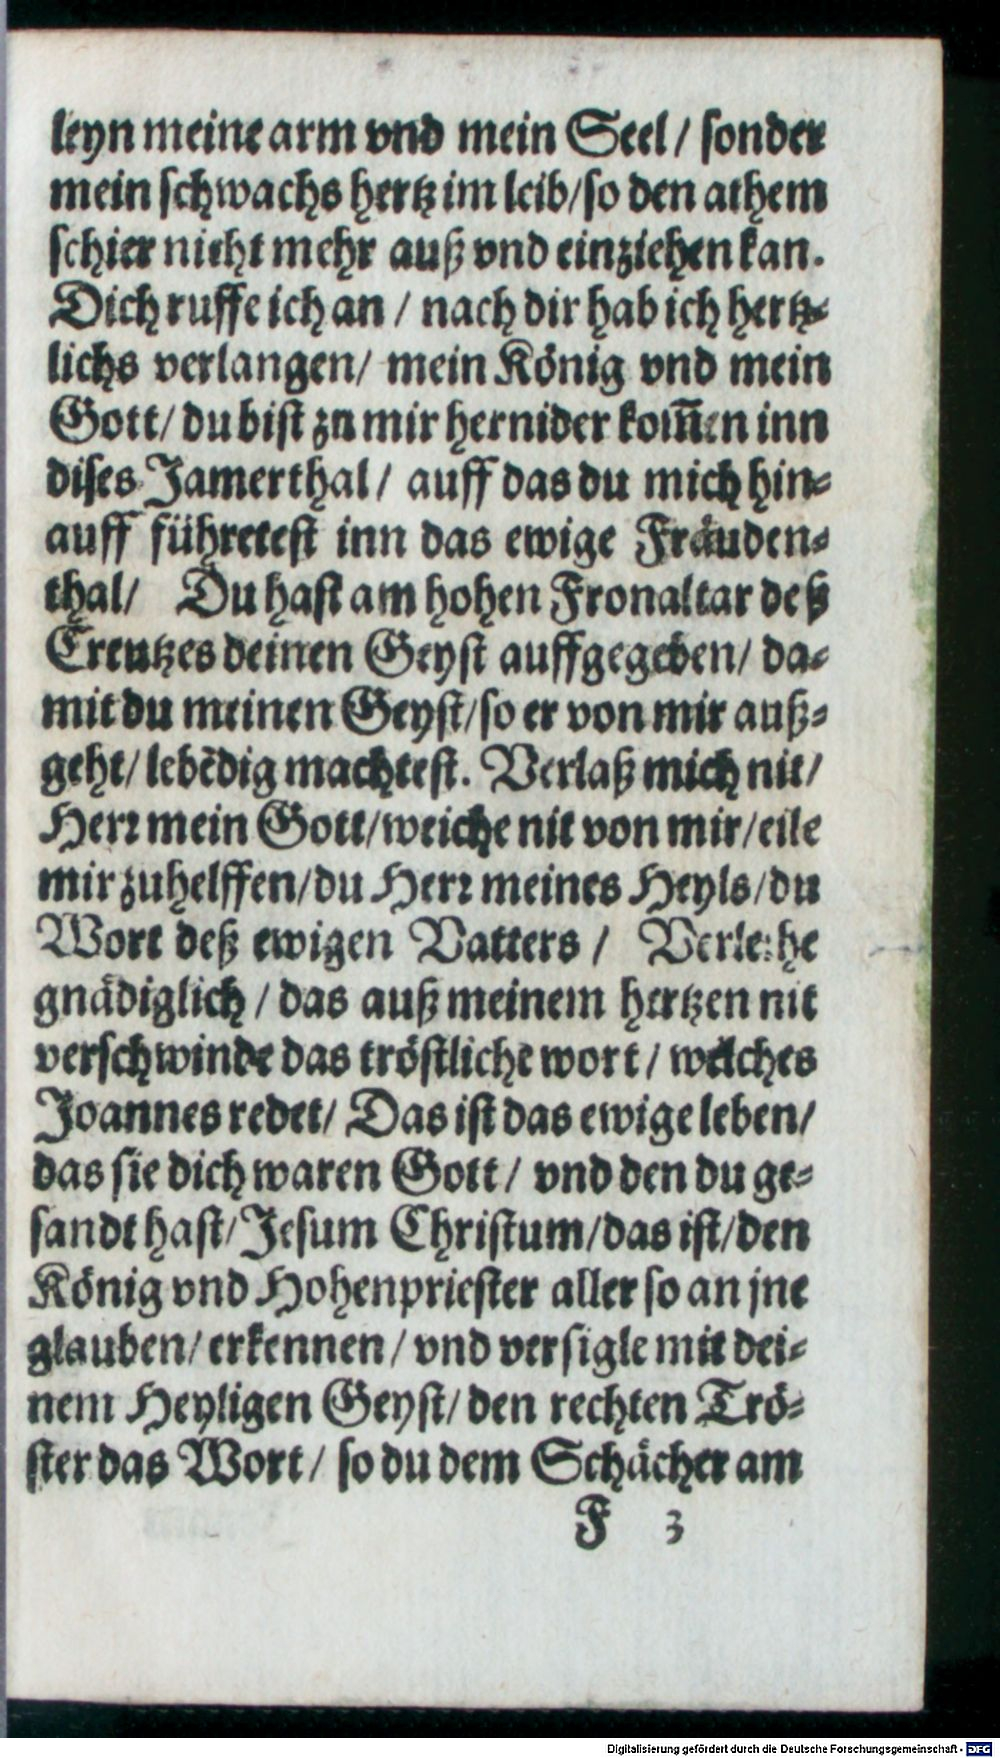 leyn meine arm vnd mein Seel / sonder
mein schwachs hertz im leib / so den athem
schier nicht mehr auß vnd einziehen kan.
Dich ruffe ich an / nach dir hab ich hertz-
lichs verlangen / mein König vnd mein
Gott / du bist zu mir hernider kom̃en inn
dises Jamerthal / auff das du mich hin-
auff führetest inn das ewige Fräuden-
thal / Du hast am hohen Fronaltar deß
Creutzes deinen Geyst auffgegeben / da-
mit du meinen Geyst / so er von mir auß-
geht / lebẽdig machtest. Verlaß mich nit /
Herr mein Gott / weiche nit von mir / eile
mir zuhelffen / du Herr meines Heyls / du
Wort deß ewigen Vatters / Verleihe
gnädiglich / das auß meinem hertzen nit
verschwinde das tröstliche wort / welches
Joannes redet / Das ist das ewige leben /
das sie dich waren Gott / vnd den du ge-
sandt hast / Jesum Christum / das ist / den
König vnd Hohenpriester aller so an jne
glauben / erkennen / vnd versigle mit dei-
nem Heyligen Geyst / den rechten Trö-
ster das Wort / so du dem Schächer am
F 3
Digitalisierung gefördert durch die Deutsche Forschungsgemeinschaft - DFG